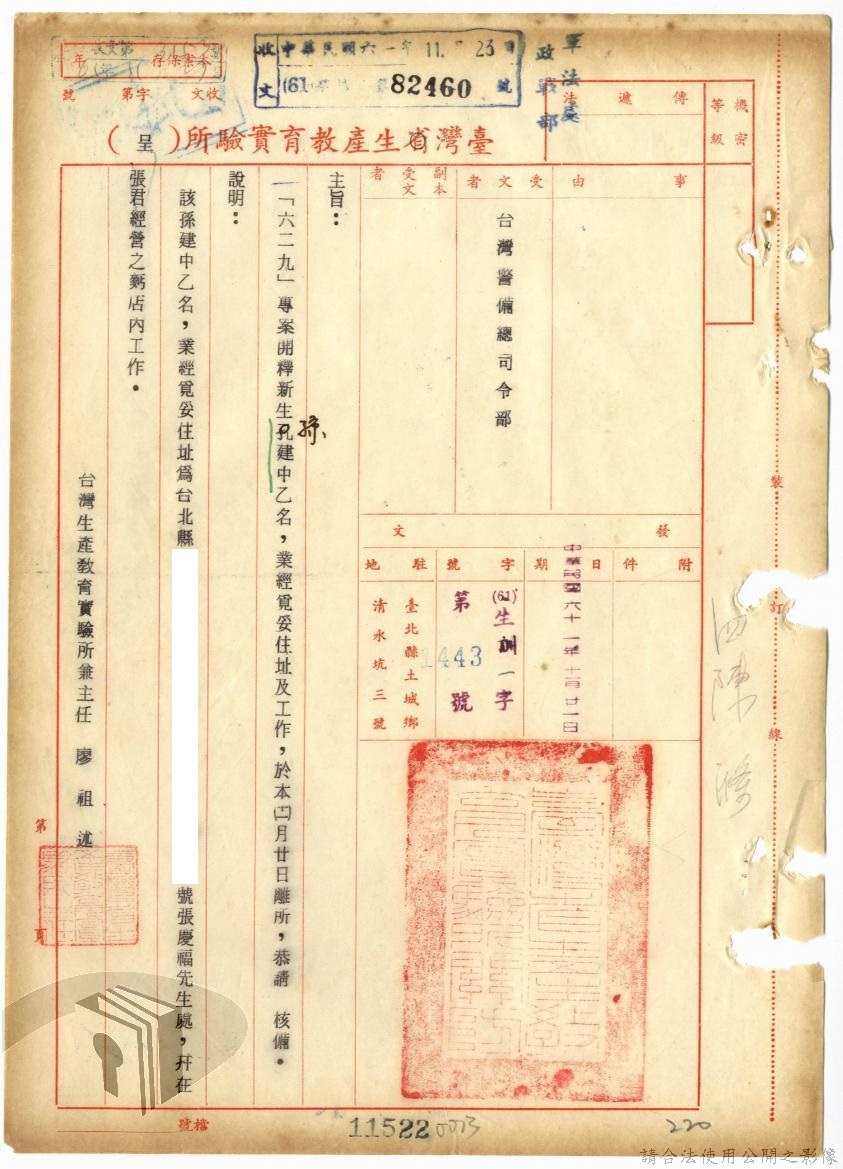 收文
中華民國六一年11.月23日
(61)
82460號
軍法處
政戰部
本案保存 年
收文 字第 號
機密等級
傳遞法
臺灣省生產教育實驗所（呈）
事由
受文者
台灣警備總司令部
副本受文者
發文
附件
日期
中華民國六十一年十一月廿一日
字號
(61)生訓一字
第1443號
駐地
臺北縣土城鄉
清水坑三號
主旨：
一「六二九」專案開釋新生孔建中乙名，業經覓妥住址及工作，於本(11)月廿日離所，恭請 核備。
孫
說明：
該孫建中乙名，業經覓妥住址為台北縣
號張慶福先生處，幷在
張君經營之麪店內工作。
台灣生產教育實驗所兼主任 廖祖述
第 頁
裝
訂
線
檔號
11522
0073
220
請合法使用公開之影像